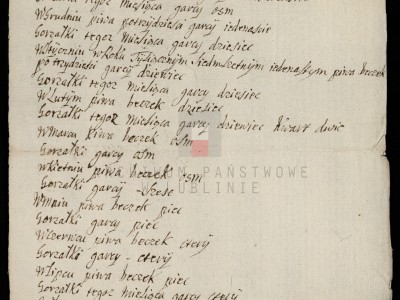 Gorzałki tegoż Miesiąca garcy osm
W Grudniu piwa po trzydziesci garcy iedenascie
Gorzałki tegoż Miesiąca garcy dziesiec
W Styczniu w Roku Tysiącznym Siedmsetnym iedenastym piwa beczek
po trzydziesci garcy dziewiec
Gorzałki tegoż Miesiąca garcy dziesiec
W Lutym piwa beczek dziesiec
Gorzałki tegoż Miesiąca garcy dziewiec kwart dwie
W Marcu piwa beczek osm
Gorzałki garcy osm
W kwietniu piwa beczek osm
Gorzałki garcy szesc
W Maiu piwa beczek piec
Gorzałki garcy piec
W Czerwcu piwa beczek cztery
Gorzałki garcy cztery
W lipcu piwa beczek piec
Gorzałki tegoż Miesiąca garcy cztery
ARCHIWUM PAŃSTWOWE
W LUBLINIE